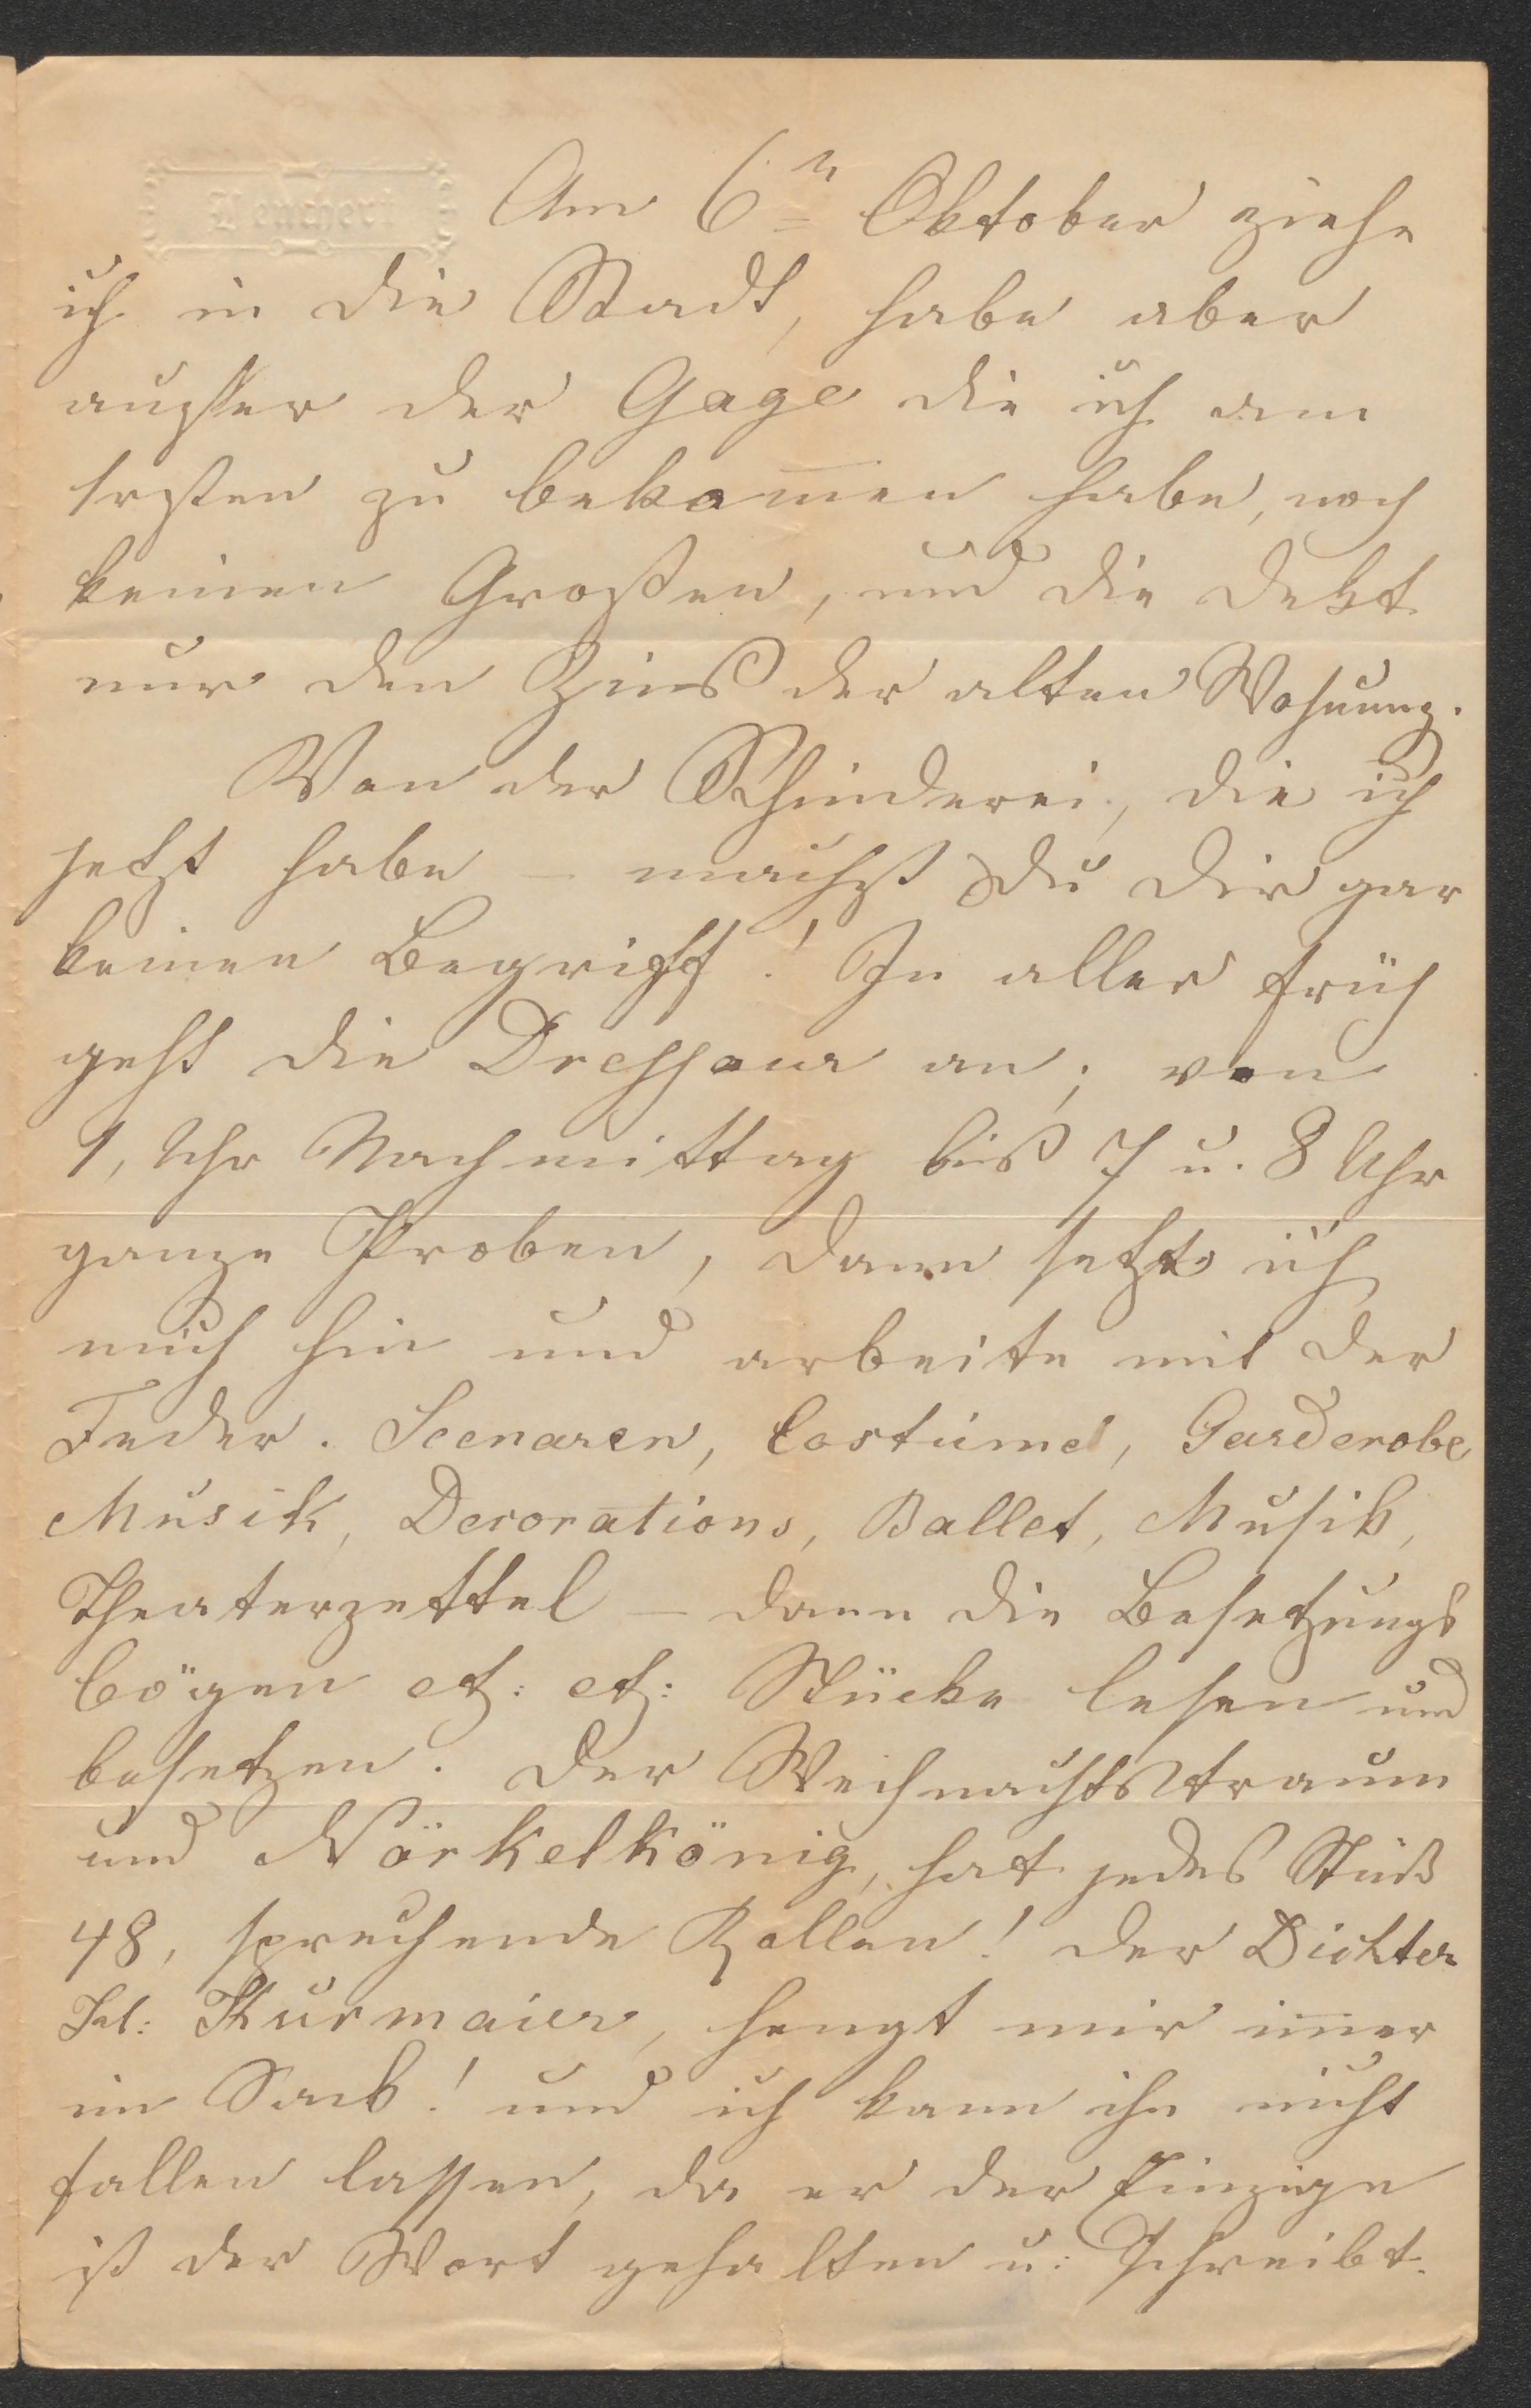 Am 6n Oktober ziehe
ich in die Stadt, habe aber
ausser der Gage die ich am
ersten zu bekom̅en habe, noch
keinen Groschen, und die dekt
nur den Zins der alten Wohnung.
Von der Schinderei, die ich
jetzt habe – machst Du Dir gar
keinen Begriff! In aller früh
geht die Dressaur an; von
1, Uhr Nachmittag bis 7 u. 8 Uhr
ganze Proben, dann setzt ich
mich hin und arbeite mit der
Feder. Scenaren, Costüme, Garderobe
Musik, Decorations, Ballet, Musik,
Theaterzettel – dann die Besetzungs
bögen etz: etz: Stücke lesen und
besetzen. Der Weihnachtstraum
und Nörkelkönig, hat jedes Stück
48, sprechende Rollen! der Dichter
Thurmaier, hengt mir im̅er
im Sack! und ich kann ihn nicht
fallen lassen, da er der Einzige
ist der Wort gehalten u: Schreibt.